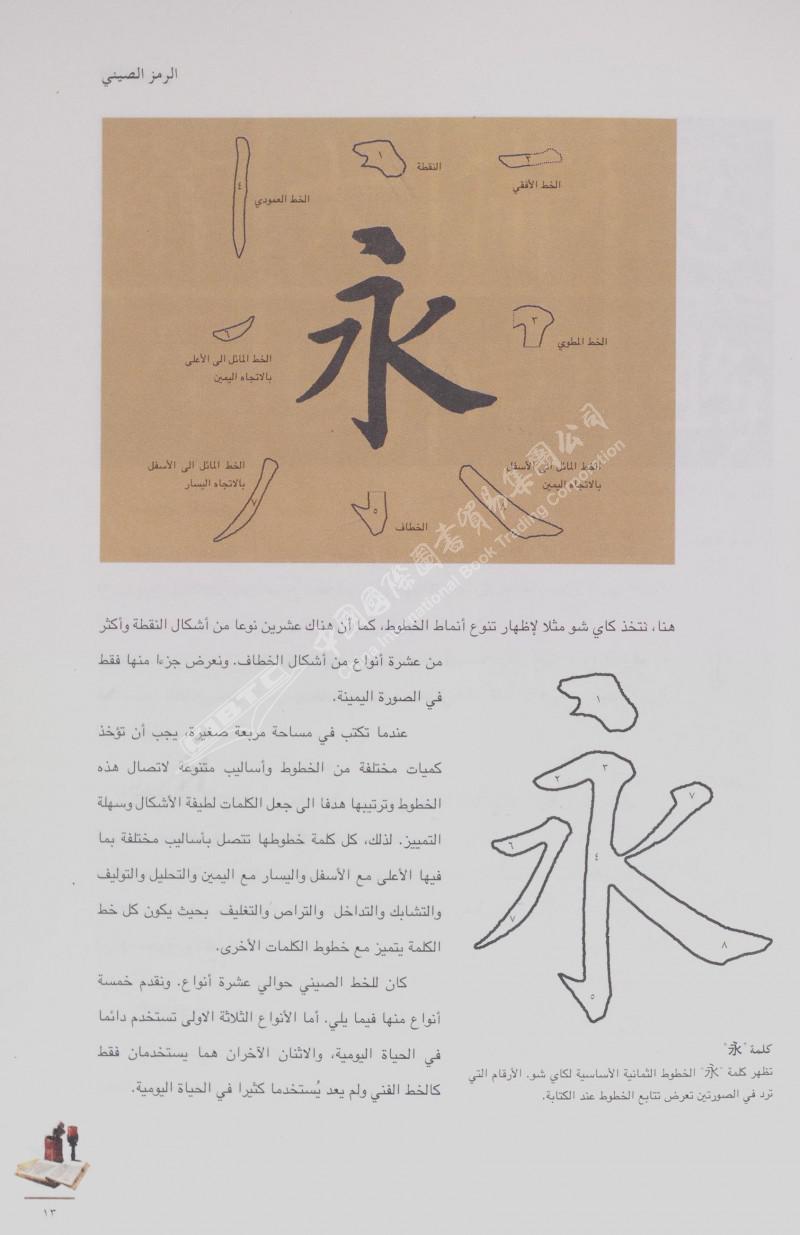 الرمز الصيني
١
النقطة
٢
الخط الأفقي
٤
الخط العمودي
永
٣
الخط المطوي
٦
الخط المائل الى الأعلى
بالاتجاه اليمين
الخط المائل الى الأسفل
بالاتجاه اليسار
٧
الخط المائل الى الأسفل
بالاتجاه اليمين
٥
الخطاف
中国国际图书贸易集团公司
China International Book Trading Corporation
CIBTC
هنا، نتخذ كاي شو مثلا لإظهار تنوع أنماط الخطوط، كما أن هناك عشرين نوعا من أشكال النقطة وأكثر
من عشرة أنواع من أشكال الخطاف. ونعرض جزءا منها فقط
في الصورة اليمينة.
عندما تكتب في مساحة مربعة صغيرة، يجب أن تؤخذ
كميات مختلفة من الخطوط وأساليب متنوعة لاتصال هذه
الخطوط وترتيبها هدفا الى جعل الكلمات لطيفة الأشكال وسهلة
التمييز. لذلك، كل كلمة خطوطها تتصل بأساليب مختلفة بما
فيها الأعلى مع الأسفل واليسار مع اليمين والتحليل والتوليف
والتشابك والتداخل والتراص والتغليف بحيث يكون كل خط
الكلمة يتميز مع خطوط الكلمات الأخرى.
كان للخط الصيني حوالي عشرة أنواع. ونقدم خمسة
أنواع منها فيما يلي. أما الأنواع الثلاثة الاولى تستخدم دائما
في الحياة اليومية، والاثنان الآخران هما يستخدمان فقط
كالخط الفني ولم يعد يُستخدما كثيرا في الحياة اليومية.
١
٢
٣
٧
٦
٤
٧
٨
٥
كلمة "永"
تظهر كلمة "永" الخطوط الثمانية الأساسية لكاي شو. الأرقام التي
ترد في الصورتين تعرض تتابع الخطوط عند الكتابة.
١٣